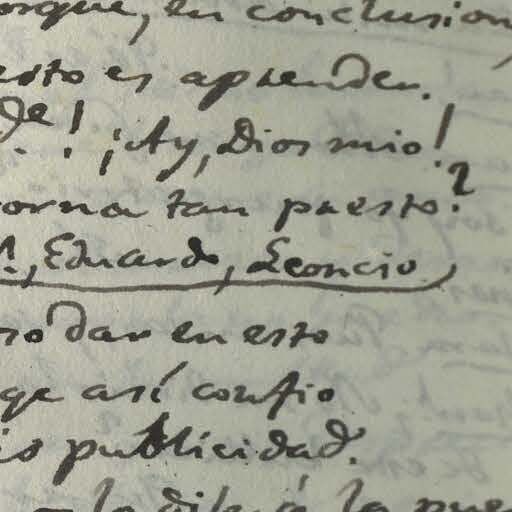 porque, en conclusion,
esto es aprender.
de! ¡Ay, Dios mio!
torna tan presto?
Eduardo, Leoncio
dar en esto
así confio
publicidad.
la